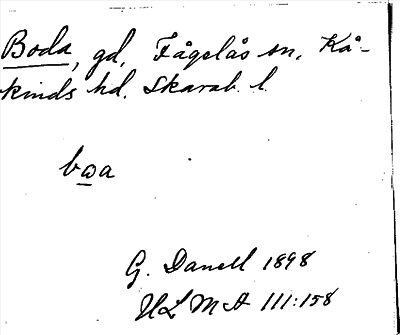 Boda, gd, Fågelås sn, Kå-
kinds hd. Skarab. l.
bωa
G. Danell 1898
ULMA 111:158